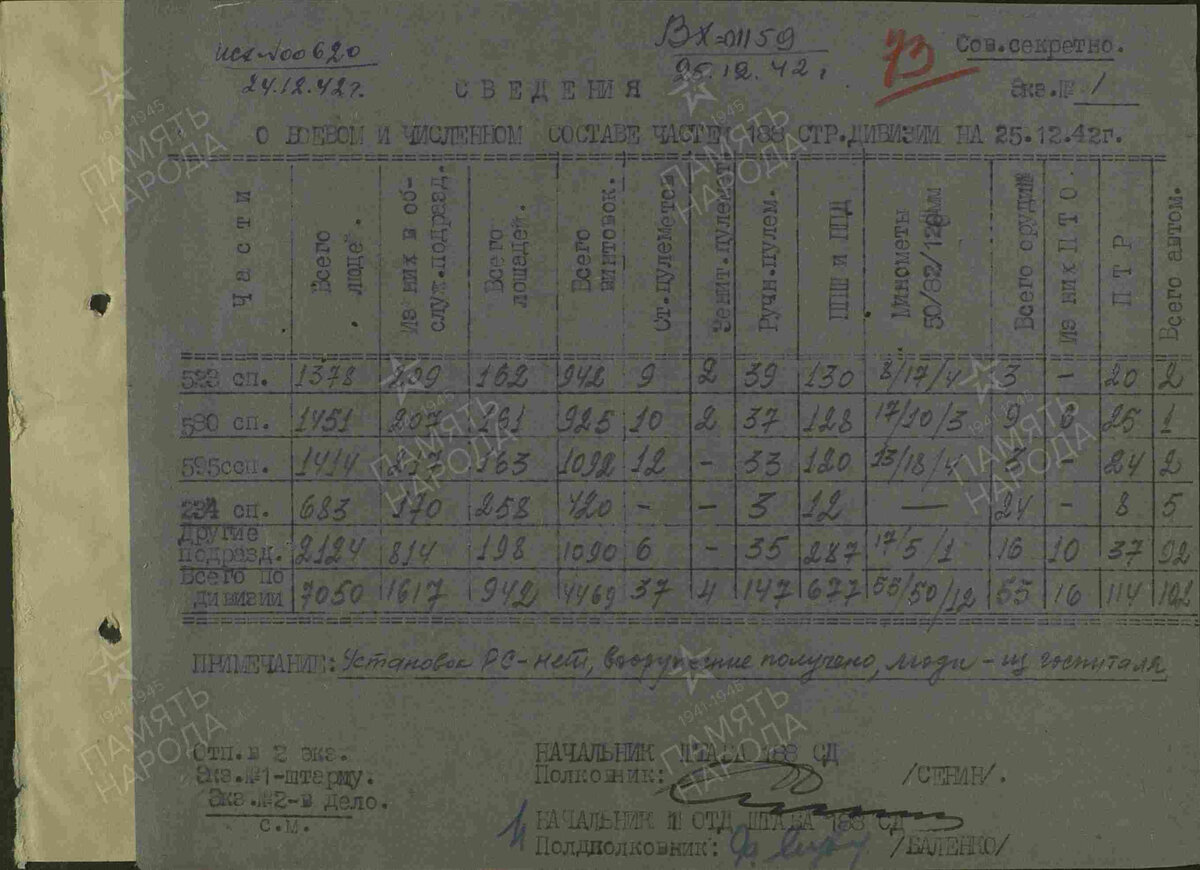 исх №00620
24.12.42г.
Вх=01159
25.12.42г
73
Сов.секретно.
Экз.№ 1
СВЕДЕНИЯ
О БОЕВОМ И ЧИСЛЕННОМ СОСТАВЕ ЧАСТЕЙ 188 СТР.ДИВИЗИИ НА 25.12.42г.
Части | Всего людей. | Из них в об-служ.подразд. | Всего лошадей. | Всего винтовок. | Ст.пулеметов | Зенит.пулемет. | Ручн.пулем. | ППШ и ППД | Минометы 50/82/120мм | Всего орудий | Из них ПТО. | ПТР | Всего автом.
523 сп. 1378 209 162 942 9 2 39 130 8/17/4 3 - 20 2
580 сп. 1451 207 161 925 10 2 37 128 17/10/3 9 6 25 1
595ссп. 1414 217 163 1092 12 - 33 120 13/18/4 3 - 24 2
234 сп. 683 170 258 420 - - 3 12 — 24 - 8 5
Другие
подразд. 2124 814 198 1090 6 - 35 287 17/5/1 16 10 37 92
Всего по
дивизии 7050 1617 942 4469 37 4 147 677 55/50/12 55 16 114 102
ПРИМЕЧАНИЕ: Установок РС-нет, вооружение получено, люди - из госпиталя
Отп.в 2 экз.
Экз.№1-штарму.
Экз.№2-в дело.
с.м.
НАЧАЛЬНИК ШТАБА 188 СД
Полковник: /СЕНИН/.
НАЧАЛЬНИК 1 ОТД ШТАБА 188 СД
Полдполковник: /БАЛЕНКО/
ПАМЯТЬ
НАРОДА
1941-1945